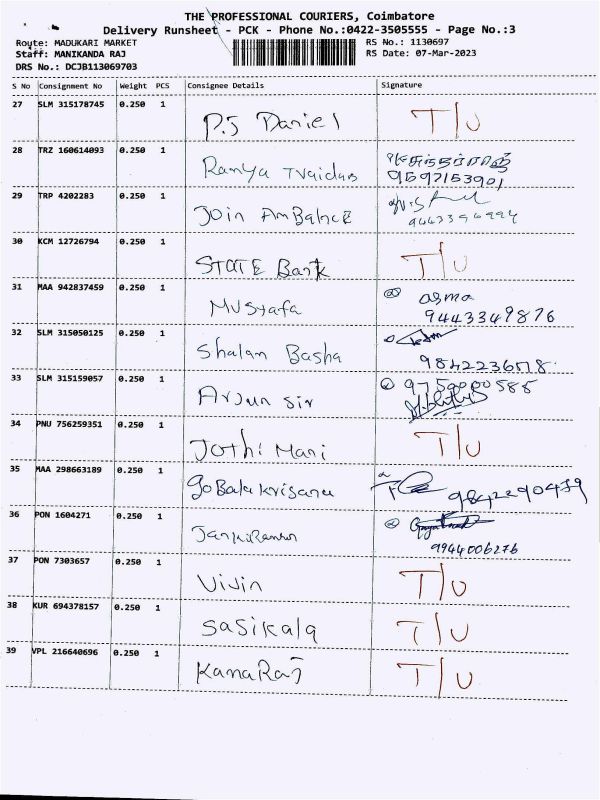 THE PROFESSIONAL COURIERS, Coimbatore
Delivery Runsheet - PCK - Phone No.:0422-3505555 - Page No.:3
Route: MADUKARI MARKET
RS No.: 1130697
Staff: MANIKANDA RAJ
RS Date: 07-Mar-2023
DRS No.: DCJB113069703
S No Consignment No Weight PCS Consignee Details Signature
27 SLM 315178745 0.250 1 P.J Daniel T/U
28 TRZ 160614093 0.250 1 Ramya
9597153901
29 TRP 4202283 0.250 1 Join
30 KCM 12726794 0.250 1 STATE Bank T/U
31 MAA 942837459 0.250 1 Mustafa asma
9443349876
32 SLM 315050125 0.250 1 Shalan Basha
33 SLM 315159057 0.250 1 Arjun sir 9750000585
34 PNU 756259351 0.250 1 Jothi Mani T/U
35 MAA 298663189 0.250 1 9842290439
36 PON 1604271 0.250 1
9944006276
37 PON 7303657 0.250 1 Vijin T/U
38 KUR 694378157 0.250 1 Sasikala T/U
39 VPL 216640696 0.250 1 KanaRaj T/U